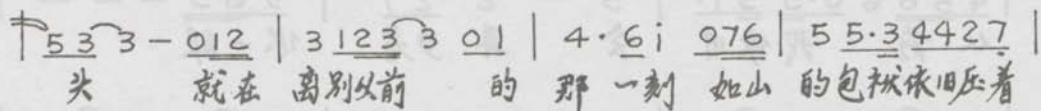 5 3 3 - 0 1 2 | 3 1 2 3 3 0 1 | 4 · 6 i 0 7 6 | 5 5 · 3 4 4 2 7 |
头 就在 离别以前 的 那 一刻 如山 的包袱依旧压着